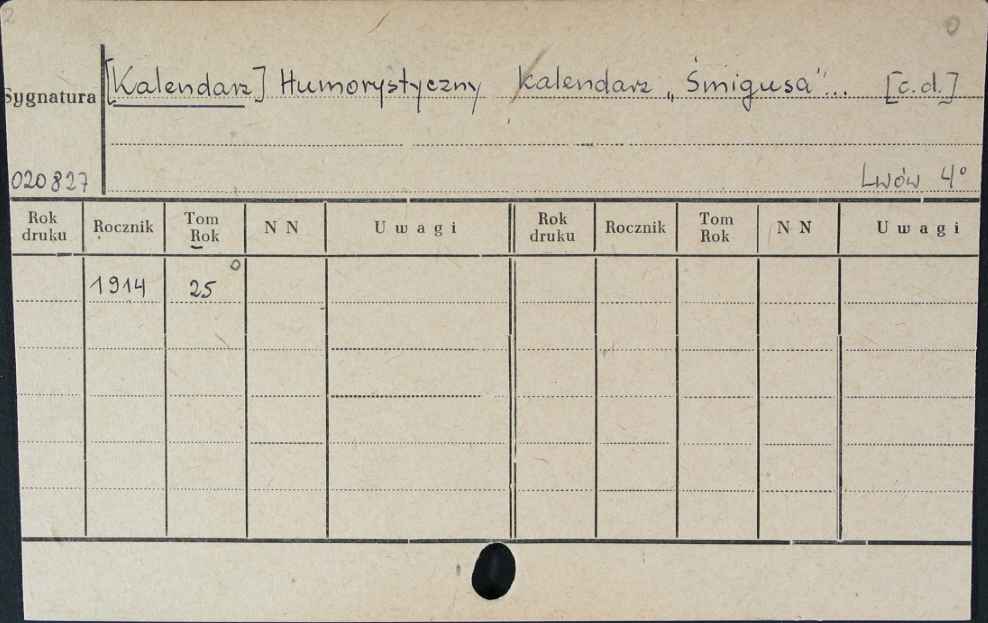 2 0
Sygnatura [Kalendarz] Humorystyczny kalendarz „Śmigusa”... [c.d.]
020827 Lwów 4°
Rok druku Rocznik Tom Rok N N Uwagi Rok druku Rocznik Tom Rok N N Uwagi
1914 25